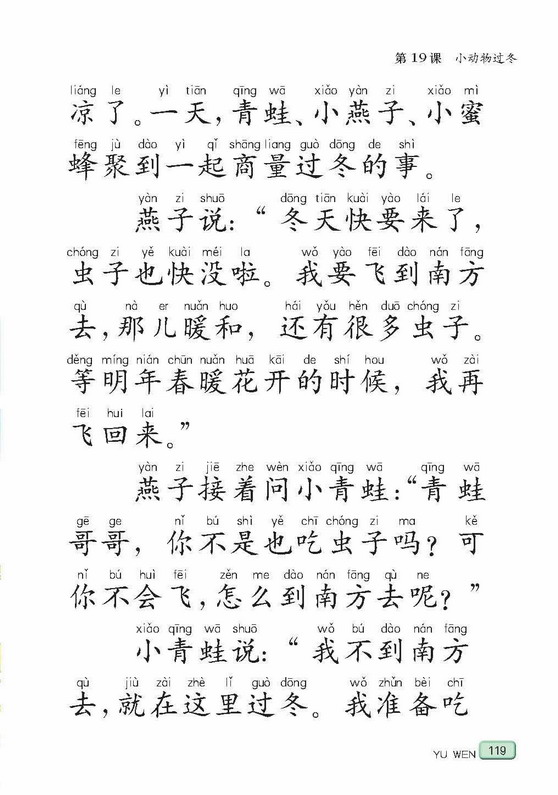 第19课 小动物过冬
liáng le yì tiān qīng wā xiǎo yàn zi xiǎo mì
凉了。一天,青蛙、小燕子、小蜜
fēng jù dào yì qǐ shāng liang guò dōng de shì
蜂聚到一起商量过冬的事。
yàn zi shuō dōng tiān kuài yào lái le
燕子说:“冬天快要来了,
chóng zi yě kuài méi la wǒ yào fēi dào nán fāng
虫子也快没啦。我要飞到南方
qù nà er nuǎn huo hái yǒu hěn duō chóng zi
去,那儿暖和,还有很多虫子。
děng míng nián chūn nuǎn huā kāi de shí hou wǒ zài
等明年春暖花开的时候,我再
fēi hui lai
飞回来。”
yàn zi jiē zhe wèn xiǎo qīng wā qīng wā
燕子接着问小青蛙:“青蛙
gē ge nǐ bú shì yě chī chóng zi ma kě
哥哥,你不是也吃虫子吗?可
nǐ bú huì fēi zěn me dào nán fāng qù ne
你不会飞,怎么到南方去呢?”
xiǎo qīng wā shuō wǒ bú dào nán fāng
小青蛙说:“我不到南方
qù jiù zài zhè lǐ guò dōng wǒ zhǔn bèi chī
去,就在这里过冬。我准备吃
YU WEN 119